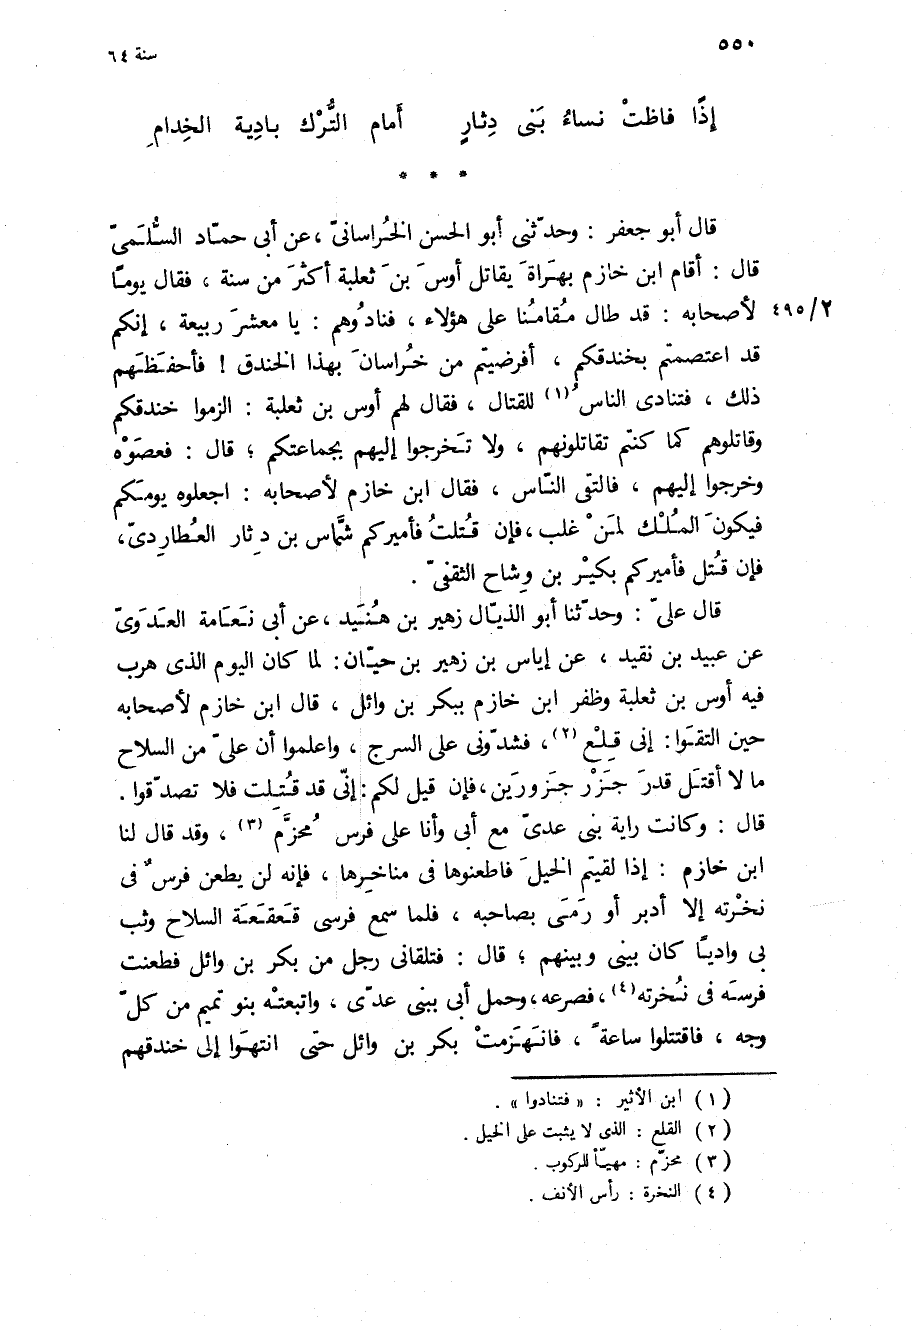 ٥٥٠
سنة ٦٤
إِذًا فاظتْ نساءُ بَنى دِثارٍ أَمام التُّرْك بادِية الخِدامِ
* * *
قال أبو جعفر : وحدّثنى أبو الحسن الخُراسانىّ ، عن أبى حمّاد السُّلَمىّ
قال : أقام ابن خازم بهَراةَ يقاتل أوسَ بنَ ثعلبة أكثرَ من سنة ، فقال يومًا
٤٩٥/٢ لأصحابه : قد طال مُقامُنا على هؤلاء ، فنادُوهم : يا معشرَ ربيعة ، إنكم
قد اعتصمتم بخندقكم ، أفرضيتم من خُراسانَ بهذا الخندق ! فأحفَظَهم
ذلك ، فتنادى الناسُ(١) للقتال ، فقال لهم أوس بن ثعلبة : الزموا خندقكم
وقاتلوهم كما كنتم تقاتلونهم ، ولا تَخرجوا إليهم بجماعتكم ؛ قال : فعصَوْه
وخرجوا إليهم ، فالتقى النّاس ، فقال ابن خازم لأصحابه : اجعلوه يومكم
فيكونَ المُلْك لمَنْ غلب ، فإن قُتلتُ فأميركم شمَّاس بن دِثار العُطارِدىّ ،
فإن قُتل فأميركم بكيْر بن وِشاح الثقفىّ .
قال علىّ : وحدّثنا أبو الذيّال زهير بن هُنَيد ، عن أبى نَعَامة العَدَوىّ
عن عبيد بن نقيد ، عن إياس بن زهير بن حيّان : لما كان اليوم الذى هرب
فيه أوس بن ثعلبة وظفر ابن خازم ببكر بن وائل ، قال ابن خازم لأصحابه
حين التقَوا : إنى قِلْع(٢) ، فشدّونى على السرج ، واعلموا أن علىّ من السلاح
ما لا أقتَل قدرَ جَزْر جَزورَين ، فإن قيل لكم : إنّى قد قُتِلت فلا تصدّقوا .
قال : وكانت راية بنى عدىّ مع أبى وأنا على فرس مُحزَّم(٣) ، وقد قال لنا
ابن خازم : إذا لقيتم الخيلَ فاطعنوها فى مناخِرها ، فإنه لن يطعن فرسٌ فى
نخْرته إلا أدبر أو رَمَى بصاحبه ، فلما سمع فرسى قَعقَعَة السلاح وثب
بى واديًا كان بينى وبينهم ؛ قال : فتلقانى رجل من بكر بن وائل فطعنت
فرسَه فى نُخرته(٤) ، فصرعه ، وحمل أبى ببنى عدّى ، واتبعتْه بنو تميم من كلّ
وجه ، فاقتتلوا ساعةً ، فانهَزمتْ بكر بن وائل حتّى انتهَوا إلى خندقهم
(١) ابن الأثير : « فتنادوا » .
(٢) القلع : الذى لا يثبت على الخيل .
(٣) محزّم : مهيّأ للركوب .
(٤) النخرة : رأس الأنف .